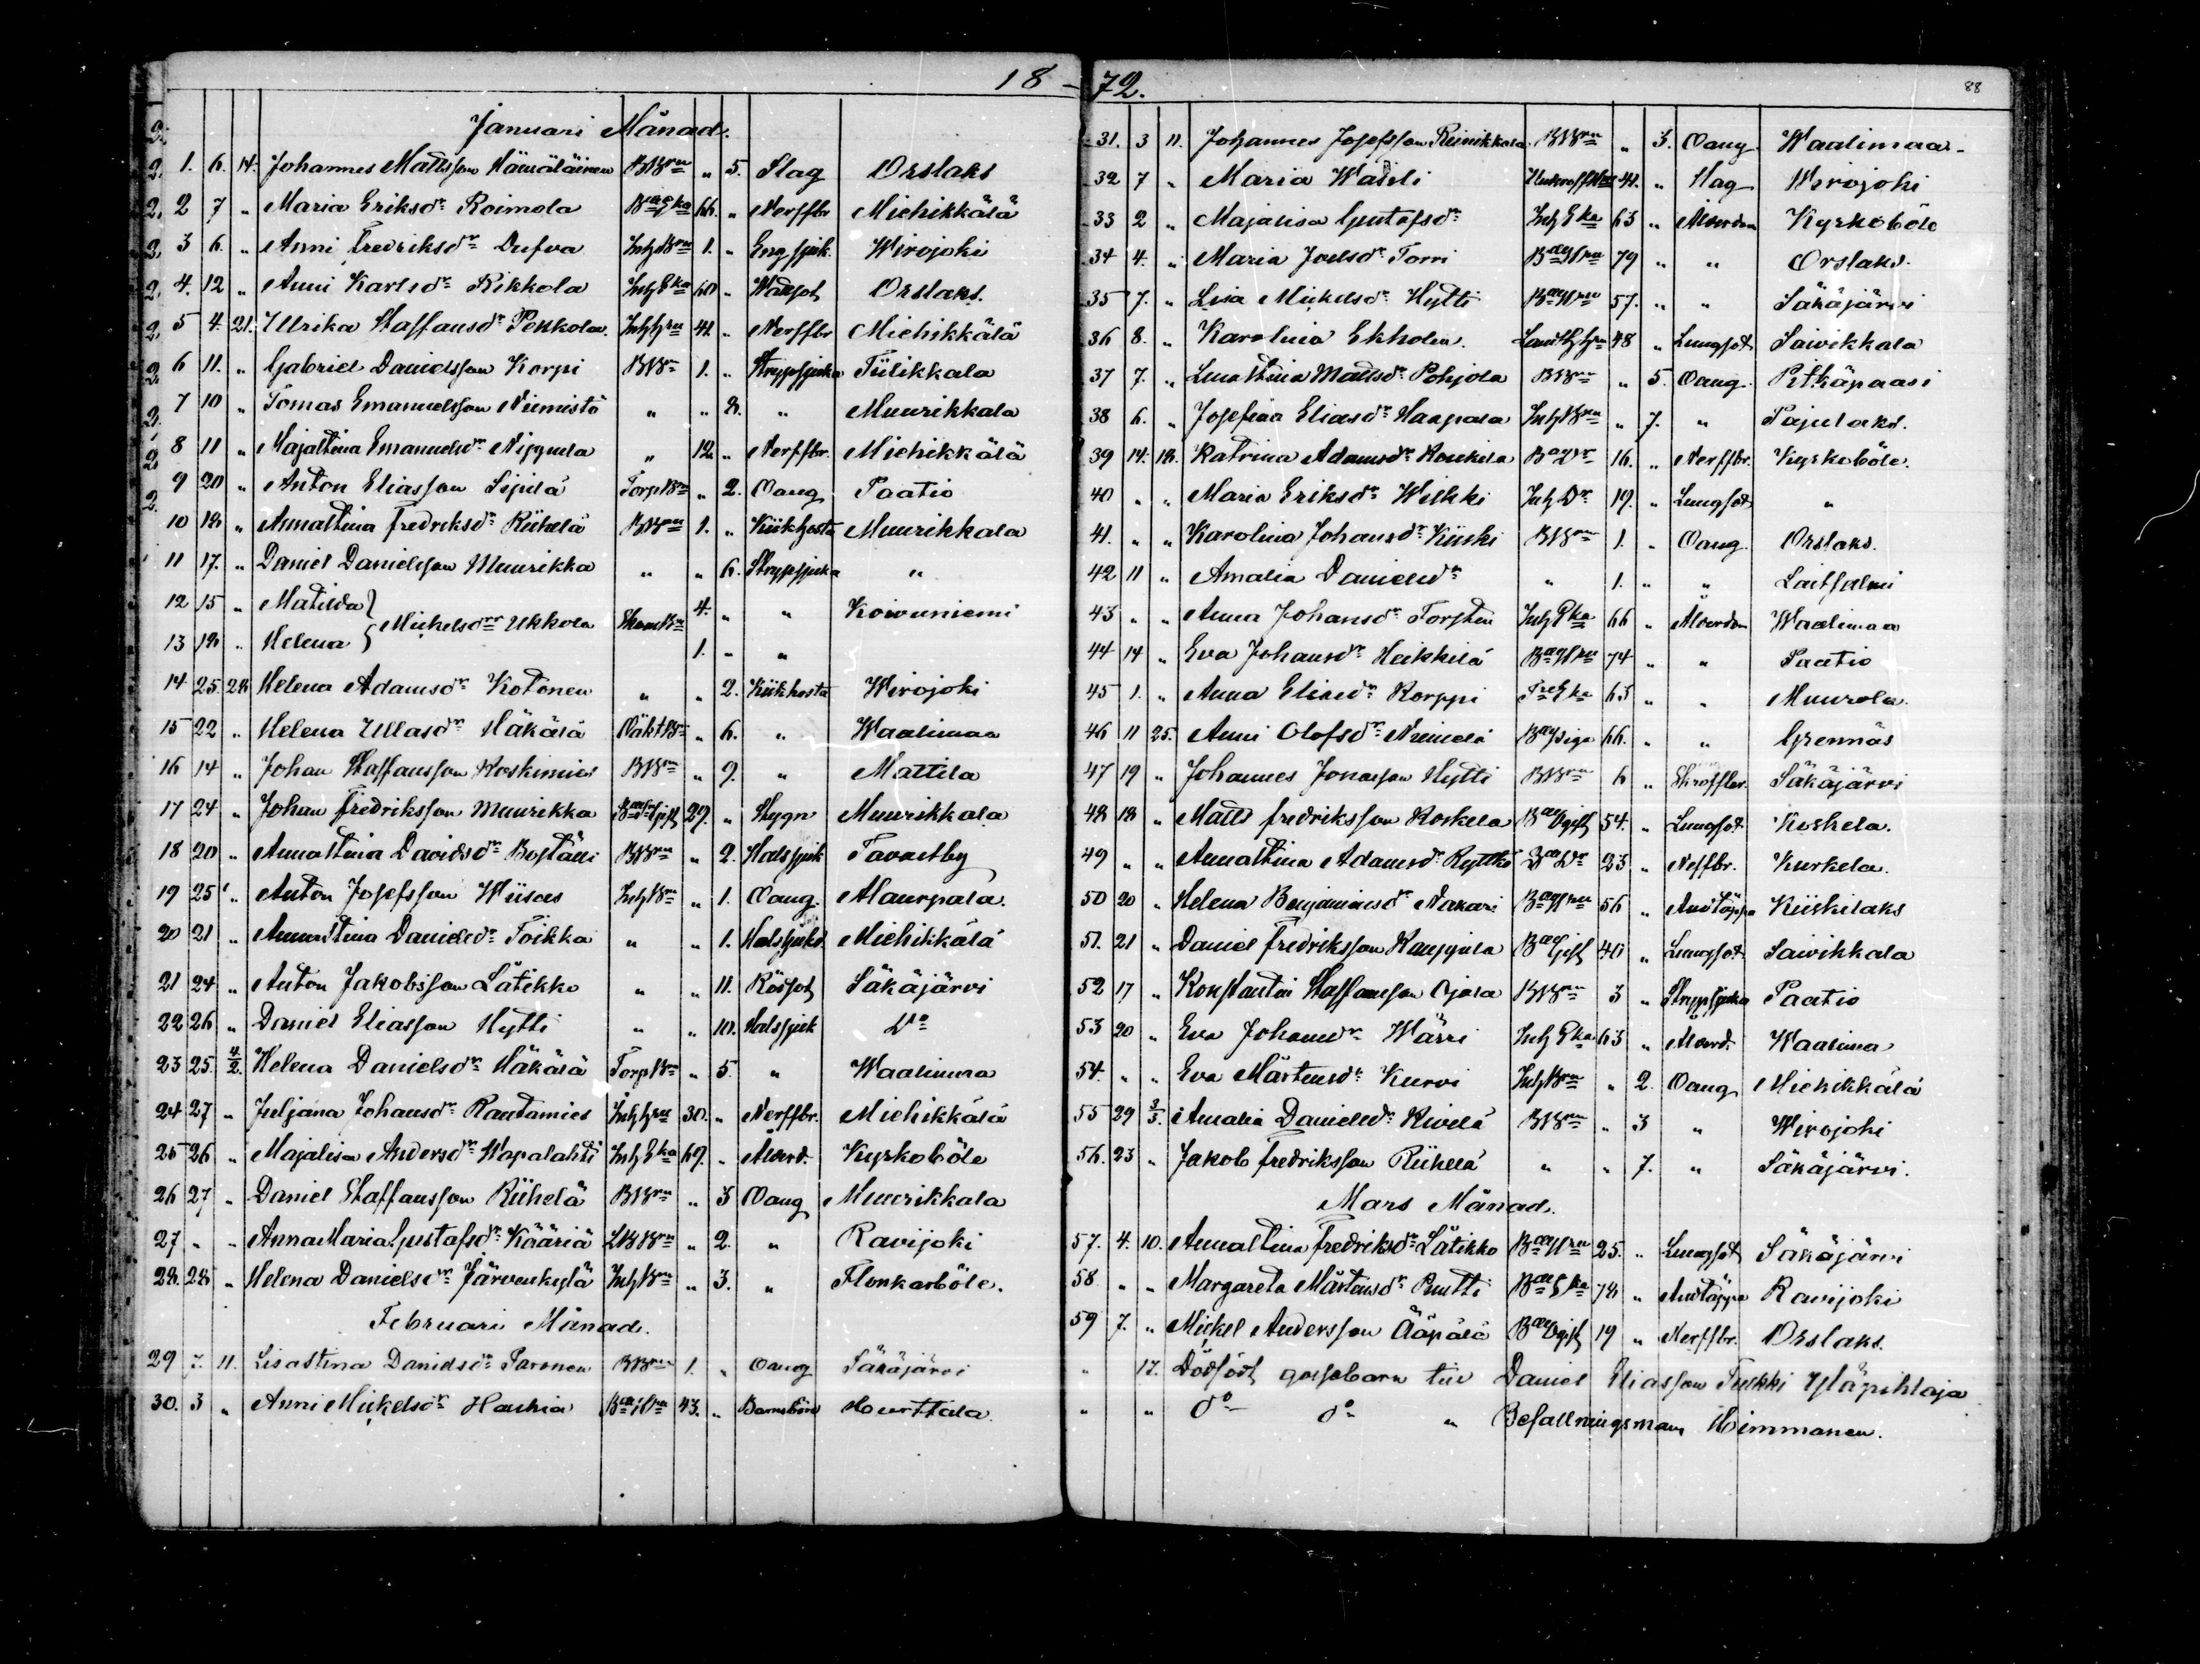 18 - 72.
88
Januari Månad.
1. 6. 14. Johannes Mattsson Hämäläinen BBrn " 5. Slag Orslaks
2 7 " Maria Eriksdr Roimola BaeEka 66. " Nerffbr Miehikkälä
3 6. " Anni Fredriksdr Dufva InhBrn 1. " Eng sjuk. Wirojoki
4. 12 " Anni Karlsdr Rikkola InhEka 60 " Wattsot Orslaks.
5 4. 21. Ulrika Staffansdr Pekkola. 41. " Nerffbr Miehikkälä
6 11. " Gabriel Danielsson Korpi BBrn 1. " Strypsjuka Tiilikkala
7 10 " Tomas Emanuelsson Niemistö " " 8. " Muurikkala
8 11 " Majastina Emanuelsdr Nippula " 12. " Nerffbr. Miehikkälä
9 20 " Anton Eliasson Sipilä TorpBrn " 2. Oang Paatio
10 18 " Annastina Fredriksdr Riihelä BBrn 1. " Kikhosta Muurikkala
11 17. " Daniel Danielsson Muurikka " " 6. Strypsjuka "
12 15 " Matilda } Michelsdrr Ukkola 4. " " Koivuniemi
13 18 " Helena } 1. " "
14 25 28 Helena Adamsdr Kotonen " " 2. Kikhosta Wirojoki
15 22 " Helena Ullasdr Häkälä " 6. " Waalimaa
16 14 " Johan Staffansson Koskimies BBrn " 9. " Mattila
17 24 " Johan Fredriksson Muurikka 29. " Stygn Muurikkala
18 20 " Annastina Davidsdr Boställi BBrn " 2. Halssjuk Tavastby
19 25 " Anton Josefsson Wiisas InhBrn " 1. Oang. Maurpala.
20 21 " Annastina Danielsdr Toikka " " 1. Halssjuk Miehikkälä
21 24 " Anton Jakobsson Lätikko " " 11. Rödsot Säkäjärvi
22 26 " Daniel Eliasson Hytti " " 10. Halssjuk Do
23 25. 4/2. Helena Danielsdr Häkälä TorpBrn " 5. " Waalimaa
24 27 " Juljana Johansdr Rautamies 30. " Nerffbr. Miehikkälä
25 26 " Majalisa Andersdr Wapalahti InhEka 69. " Ålderd. Kyrkoböle
26 27 " Daniel Staffansson Riihelä BBrn " 3 Oang Muurikkala
27 " " Anna Maria Gustafsdr Kääriä " 2. " Ravijoki
28. 28 " Helena Danielsdr Järvenkylä InhBrn " 3. " Flonkarböle.
Februari Månad.
29 7. 11. Lisastina Danielsdr Paronen BBrn 1. " Oang Säkäjärvi
30. 3 " Anni Mickelsdr Hauhia 43. " Barnsbörd Hurttala
31. 3 11. Johannes Josefsson Reinikkala BBrn " 3. Oang Waalimaa
32 7 " Maria 41. " Slag Wirojoki
33 2 " Majalisa Gustafsdr InhEka 63 " Ålderdom Kyrkoböle
34 4. " Maria Joelsdr Torri 79 " " Orslaks.
35 7. " Lisa Mickelsdr Hytti 57. " " Säkäjärvi
36 8. " Karolina Ekholm. 48 " Lungsot Saivikkala
37 7. " Lenastina Mattsdr Pohjola BBrn " 5. Oang. Pitkäpaasi
38 6. " Josefina Eliasdr Haapala InhBrn " 7. " Pajulaks.
39 14. 18. Katrina Adamsdr Koukila 16. " Nerffbr. Kyrkoböle.
40 " " Maria Eriksdr Wilkki InhDr 19. " Lungsot "
41. " " Karolina Johansdr Kiiski BBrn 1. " Oang. Orslaks.
42 11 " Amalia Danielsdr " 1. " " Laitsalmi
43 " " Anna Johansdr Torsten InhEka 66 " Ålderdom Waalimaa
44 14 " Eva Johansdr Heikkilä 74 " " Paatio
45 1. " Anna Eliasdr Korppi 63 " " Muurola.
46 11 25. Anni Olofsdr Niemelä Baepiga 66. " " Grennäs
47 19 " Johannes Jonasson Hytti BBrn 6 " Skroffler. Säkäjärvi
48 18 " Matts Fredriksson Koskela 54. " Lungsot Koskela.
49 " " Annastina Adamsdr Ryttkö BaeDr 23 " Nerffbr. Kurkela.
50 20 " Helena Benjaminsdr Nakari 56 " Andtäppa Kiiskilaks
51. 21 " Daniel Fredriksson Kauppila 40 " Lungsot Saivikkala
52 17 " Konstantin Staffansson Ojala BBrn 3 " Strypsjuka Paatio
53 20 " Eva Johansdr Wärri InhEka 63 " Ålderd. Waalimaa
54. " " Eva Mårtensdr Kurvi InhBrn " 2. Oang Miehikkälä
55 29 3/3. Amalia Danielsdr Kivelä BBrn " 3 " Wirojoki
56. 23 " Jakob Fredriksson Riihelä " " 7. " Säkäjärvi.
Mars Månad.
57. 4. 10. Annastina Fredriksdr Lätikko 25. " Lungsot Säkäjärvi
58 " " Margareta Mårtensdr Puutti BaeEka 78 " Andtäppa Ravijoki
59 7. " Mickel Andersson Ääpälä 19 " Nerffbr. Orslaks.
" 17. Dödfödt gossebarn till Daniel Eliasson Tulkki Yläpihlaja
" " do do " Befallningsman Himmanen.